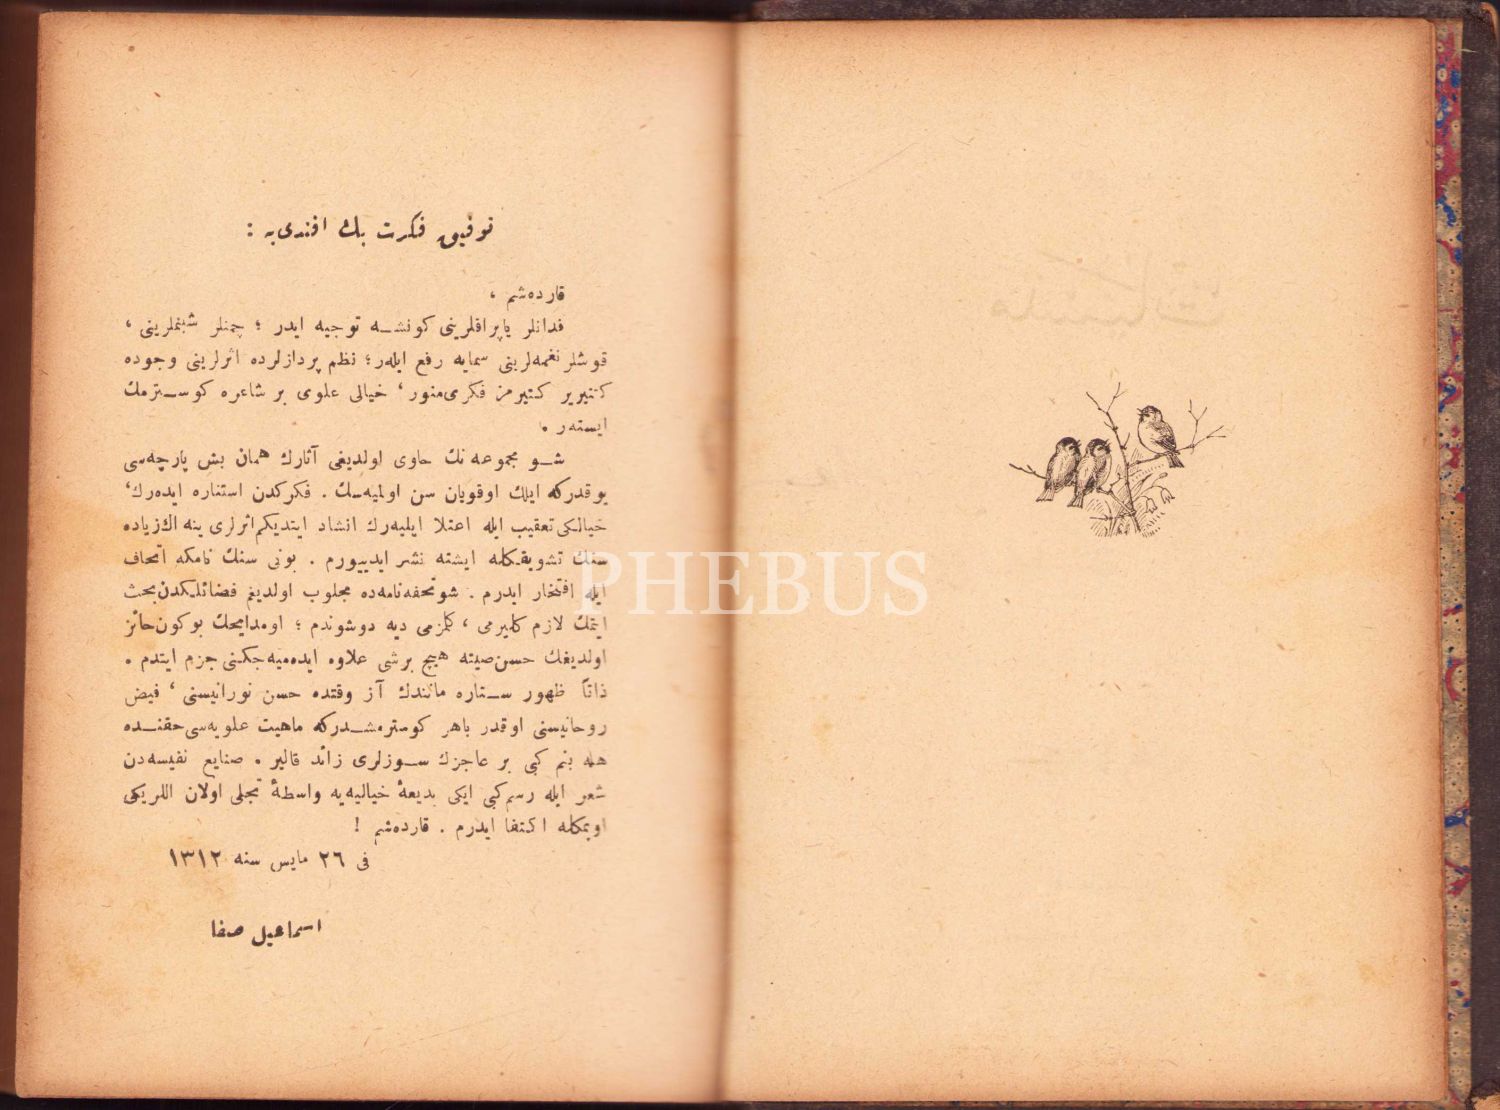 توفیق فكرت بك افندی‌یه :
قارده‌شم ،
فدانلر یاپراقلرینی كونشـه توجیه ایدر ؛ چمنلر شبنملرینی ،
قوشلر نغمه‌لرینی سمایه رفع ایله‌ر؛ نظم پردازلرده اثرلرینی وجوده
كتیریر كتیرمز فكری‌منور ، خیالی علوی بر شاعره كوسـترمك
ایسته‌ر .
شـو مجموعه نك حاوی اولدیغی آثارك همان بش پارچه‌سی
یوقدركه ایلك اوقویان سن اولمیه‌سك . فكركدن استناره ایده‌رك،
خیالكی تعقیب ایله اعتلا ایلیه‌رك انشاد ایتدیكم‌اثرلری ینه اك‌زیاده
سنك تشویقـكله ایشته نشر ایدییورم . بونی سنك نامكه اتحاف
ایله افتخار ایدرم . شوتحفه‌نامه‌ده مجلوب اولدیغم فضائلـكدن‌بحث
ایتمك لازم كلیرمی ، كلمزمی دیه دوشوندم ؛ اومدایحك بوكون‌حائز
اولدیغك حسن‌صیته هیچ برشی علاوه ایده‌میه‌جكنی جزم ایتدم .
ذاتاً ظهور سـتاره مانندك آز وقتده حسن نورانیسنی ، فیض
روحانیسنی اوقدر باهر كوسترمشـدركه ماهیت علویه‌سی‌حقنـده
هله بنم كبی بر عاجزك سـوزلری زائد قالیر . صنایع نفیسه‌دن
شعر ایله رسم‌كبی ایكی بدیعهٔ خیالیه‌یه واسطهٔ تجلی اولان اللریكی
اوپمكله اكتفا ایدرم . قارده‌شم !
فی ٢٦ مایس سنه ١٣١٢
اسماعیل صفا
PHEBUS